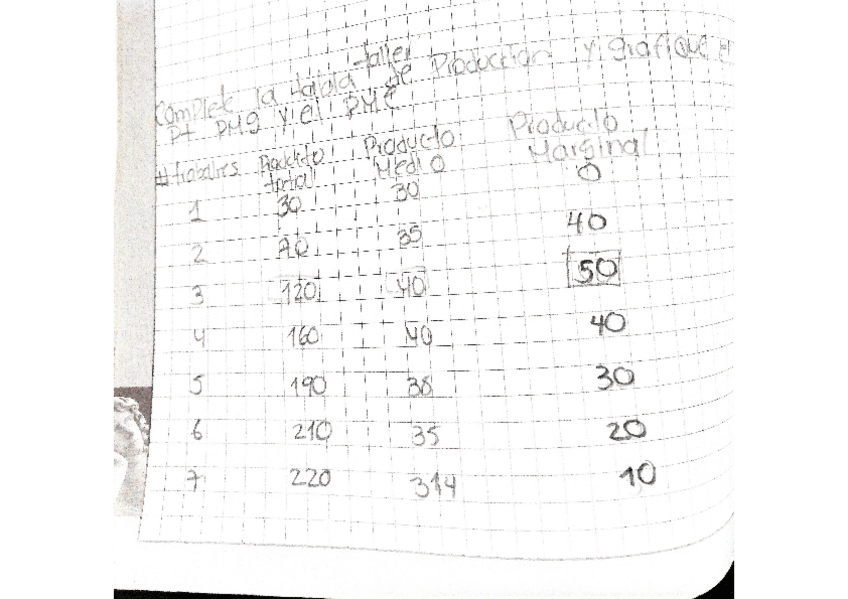 taller
Complete la tabla de Producción y grafique el
Pt PMg y el PMe
# trabadres Producto total Producto Medio Producto Marginal
1 30 30 0
2 70 35 40
3 120 40 50
4 160 40 40
5 190 38 30
6 210 35 20
7 220 314 10